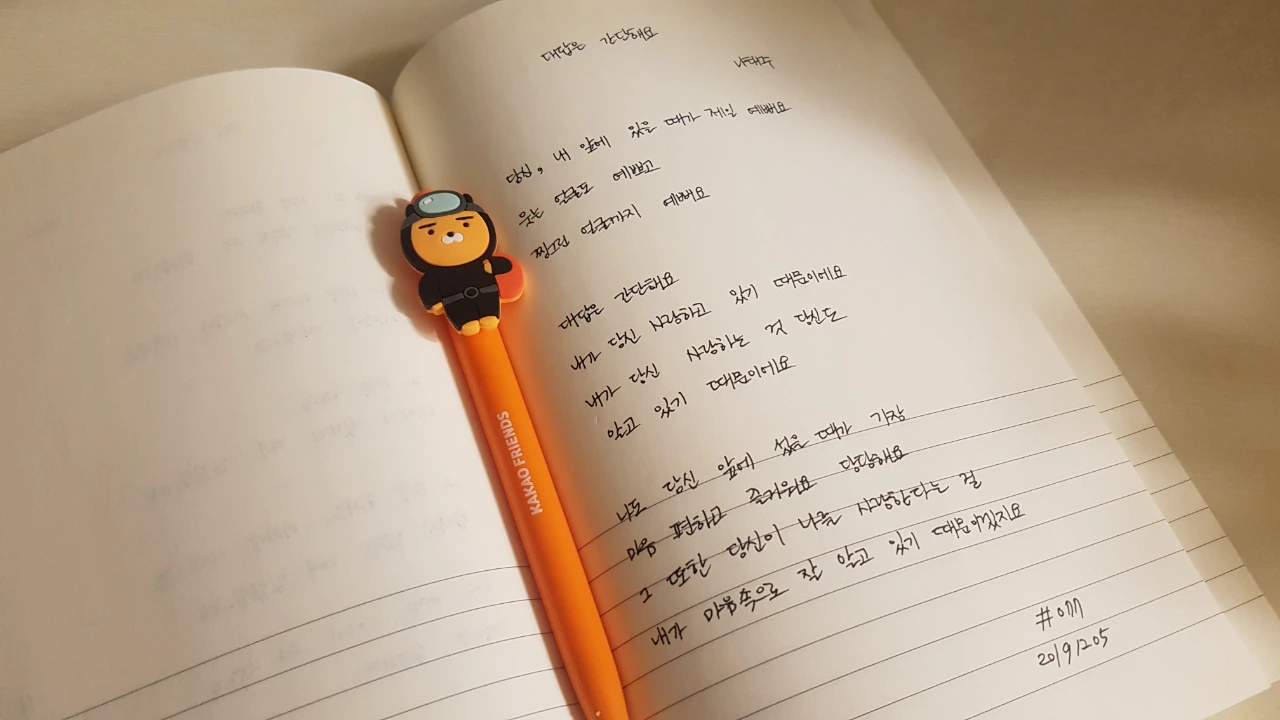 대답은 간단해요
나태주
당신, 내 앞에 있을 때가 제일 예뻐요
웃는 얼굴도 예쁘고
찡그린 얼굴까지 예뻐요
대답은 간단해요
내가 당신 사랑하고 있기 때문이에요
내가 당신 사랑하는 것 당신도
알고 있기 때문이에요
나도 당신 앞에 섰을 때가 가장
마음 편하고 즐거워요 당당해요
그 또한 당신이 나를 사랑한다는 걸
내가 마음속으로 잘 알고 있기 때문이겠지요
20191205
KAKAO FRIENDS